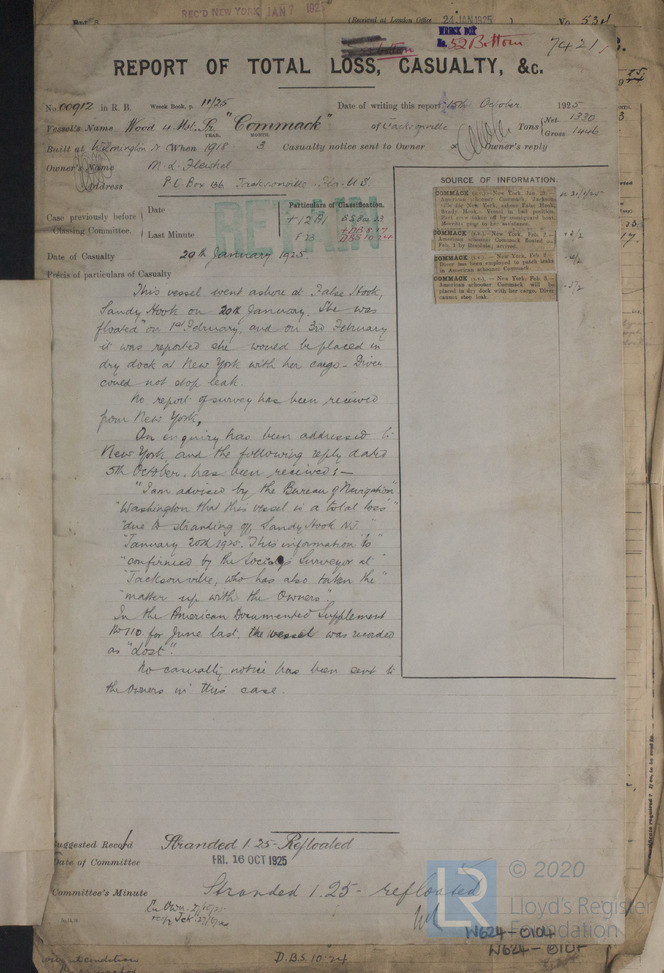 REC'D NEW YORK JAN 7 192
(Received at London Office 24 JAN 1925 ) No. 534
WRECK BOX
No. 52 Bottom
7421
REPORT OF TOTAL LOSS, CASUALTY, &c.
No. 00912 in R. B. Wreck Book, p. 11/25 Date of writing this report 15th October 1925
Vessel's Name Wood 4 Mst. Sr "Commack" of Jacksonville Tons Net 1330 Gross 1446
Built at Wilmington N. When 1918 YEAR. 3 MONTH Casualty notice sent to Owner Owner's reply
Owner's Name M. L. Fleishel
Address P.O Box 136 Jacksonville Fla. U.S.
Case previously before Classing Committee. Date
Last Minute
Particulars of Classification.
+12A1 SS
F 23 DBS 10.24
RETAIN
SOURCE OF INFORMATION.
Date of Casualty 20th January 1925.
Précis of particulars of Casualty
This vessel went ashore at False Hook,
Sandy Hook on 20th January. She was
floated on 1st February, and on 3rd February
it was reported she would be placed in
dry dock at New York with her cargo - Diver
could not stop leak.
No report of survey has been received
from New York.
An enquiry has been addressed to
New York and the following reply dated
5th October, has been received:-
"I am advised by the Bureau of Navigation
"Washington that this vessel is a total loss
"due to stranding off Sandy Hook NJ
"January 20th 1925. This information is
"confirmed by the Society's Surveyor at
"Jacksonville, who has also taken the
"matter up with the Owners".
In the American Documented Supplement
No 110 for June last, the vessel was recorded
as "Lost".
No casualty notice has been sent to
the Owners in this case.
COMMACK (s.v.).—New York, Jan. 20.—
American schooner Commack, Jackson-
ville for New York, ashore False Hook,
Sandy Hook. Vessel in bad position.
COMMACK (s.v.).—New York, Feb. 2.—
American schooner Commack floated
Feb. 1
COMMACK (s.v.).—New York, Feb. 2.—
Diver has been employed to patch leaks
in American schooner Commack.
COMMACK (s.v.).—New York, Feb. 3.—
American schooner Commack will be
placed in dry dock with her cargo. Diver
cannot stop leak.
Suggested Record Stranded 1.25 - Refloated
Date of Committee FRI. 16 OCT 1925
Committee's Minute Stranded 1.25 - refloated
© 2020
LR
Lloyd's Register
Foundation
W624-0104
W624-0101
D.B.S. 10.24